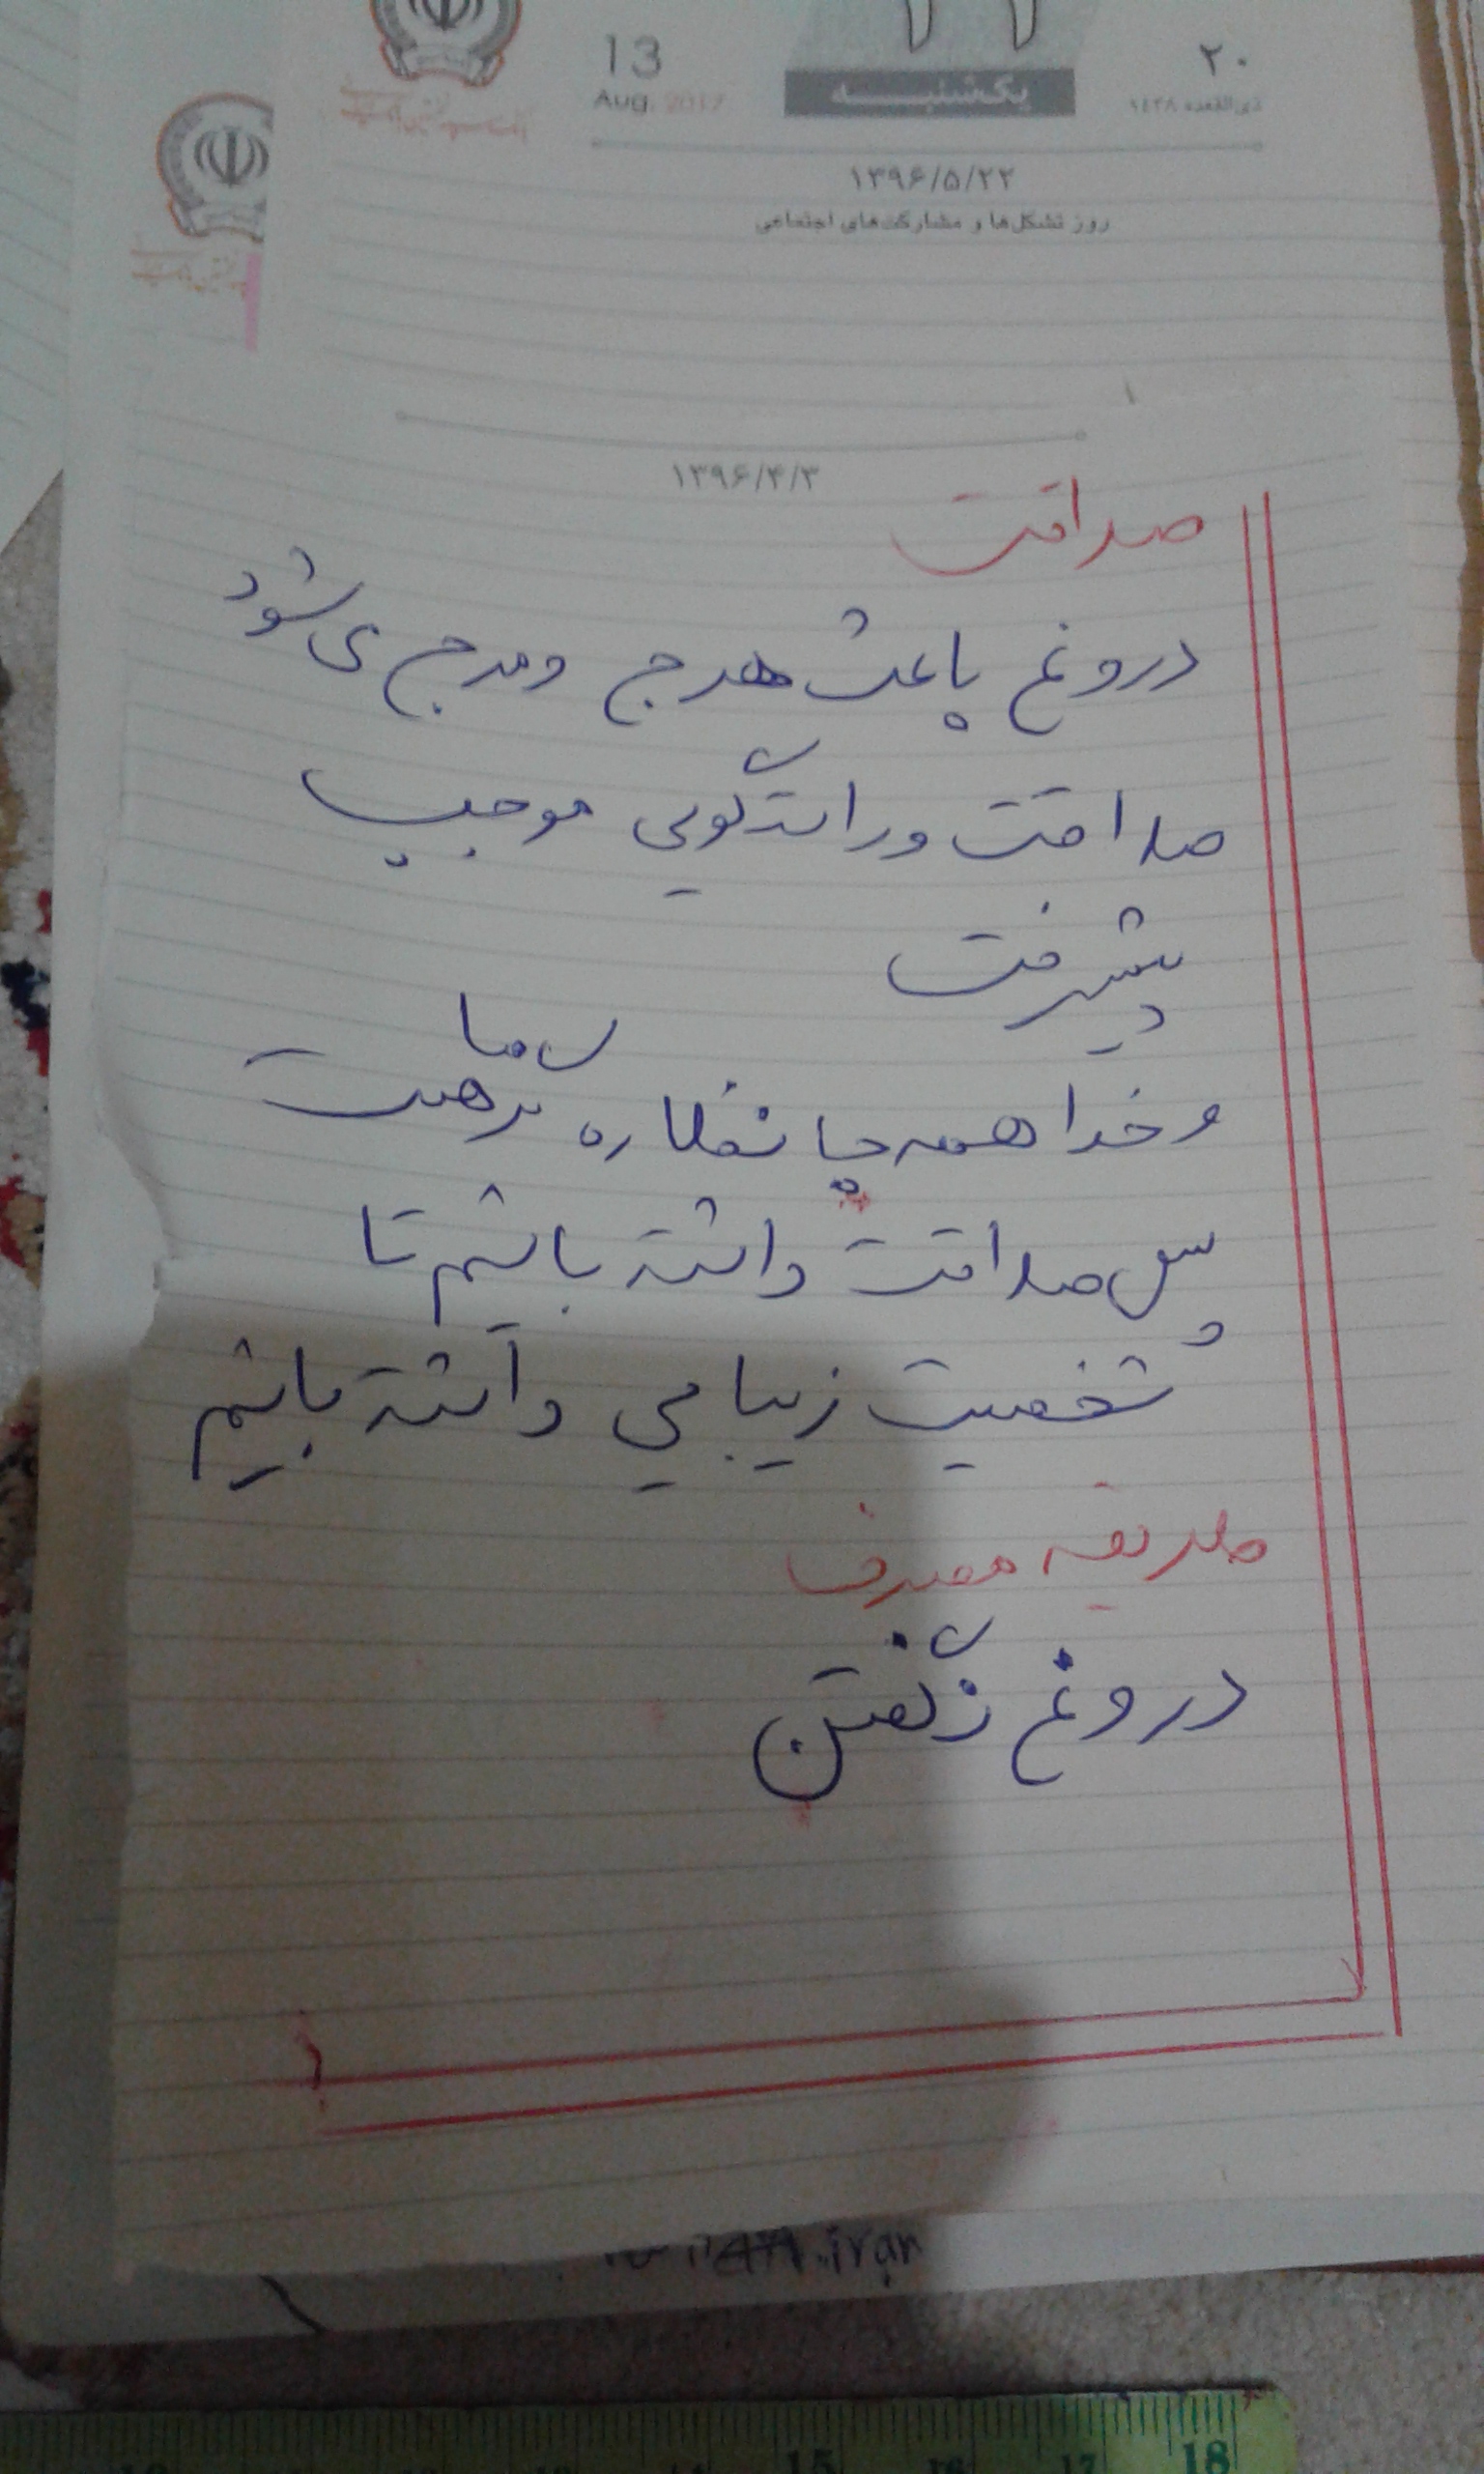 13
۲۰
Aug. 2017
یکشنبه
ذی‌القعده ۱۴۳۸
۱۳۹۶/۵/۲۲
روز تشکل‌ها و مشارکت‌های اجتماعی
۱۳۹۶/۴/۳
صداقت
دروغ باعث هرج ومرج ی شود
صداقت وراستگویی موجب
پیشرفت
و خدا همه جا نظاره گر ما هست
پس صداقت داشته باشیم تا
شخصیت زیبایی داشته باشیم
طریقه مصرف
دروغ نگفتن
.iran
15 16 17 18